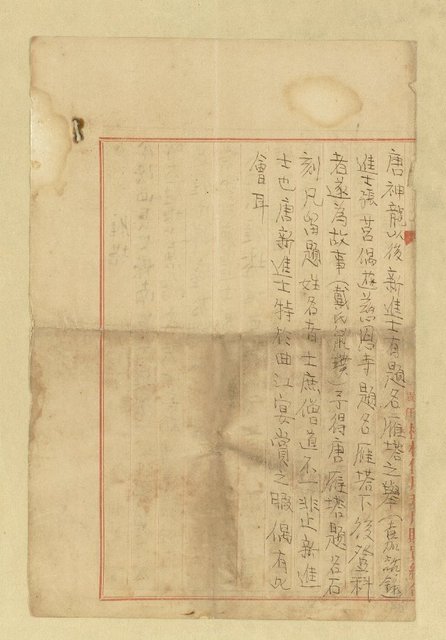 唐神龍以後新進士有題名雁塔之舉（嘉話錄
進士張莒偶遊慈恩寺題名雁塔下後登科
者遂為故事（戴氏鼠璞）予得唐雁塔題名石
刻凡留題姓名者士庶僧道不一非止新進
士也唐新進士特於曲江宴賞之暇偶有此
會耳